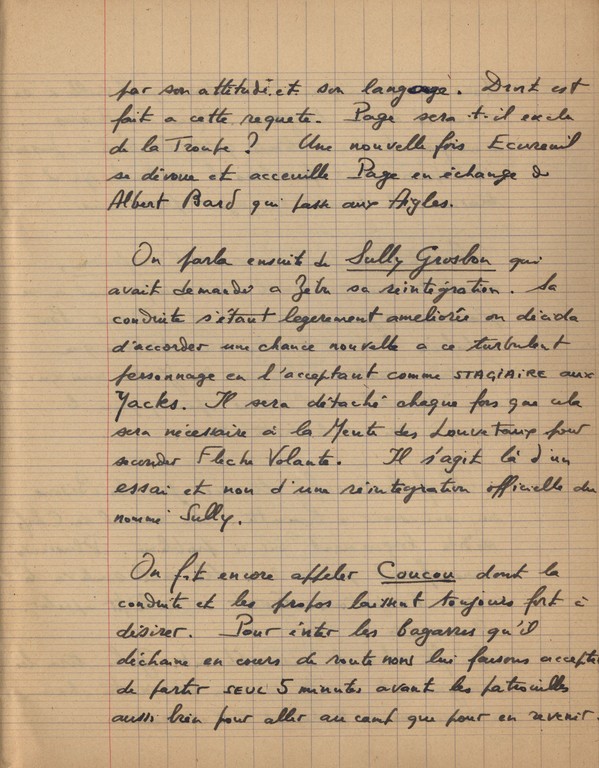 par son attitude et son langage. Droit est
fait a cette requete. Page sera-t-il exclu
de la Troupe ? Une nouvelle fois Ecureuil
se dévoue et acceuille Page en échange de
Albert Bard qui passe aux Aigles.
On parla ensuite de Sully Grosbon qui
avait demandé a Zébu sa réintégration. Sa
conduite s'étant legerement ameliorée on décida
d'accorder une chance nouvelle a ce turbulent
personnage en l'acceptant comme STAGIAIRE aux
Yacks. Il sera détaché chaque fois que cela
sera nécessaire à la Meute des Louveteaux pour
seconder Fleche Volante. Il s'agit là d'un
essai et non d'une réintegration officielle du
nommé Sully.
On fit encore appeler Coucou dont la
conduite et les propos laissent toujours fort à
désirer. Pour éviter les bagarres qu'il
déchaine en cours de route nous lui faisons accepter
de partir SEUL 5 minutes avant les patrouilles
aussi bien pour aller au camp que pour en revenir.